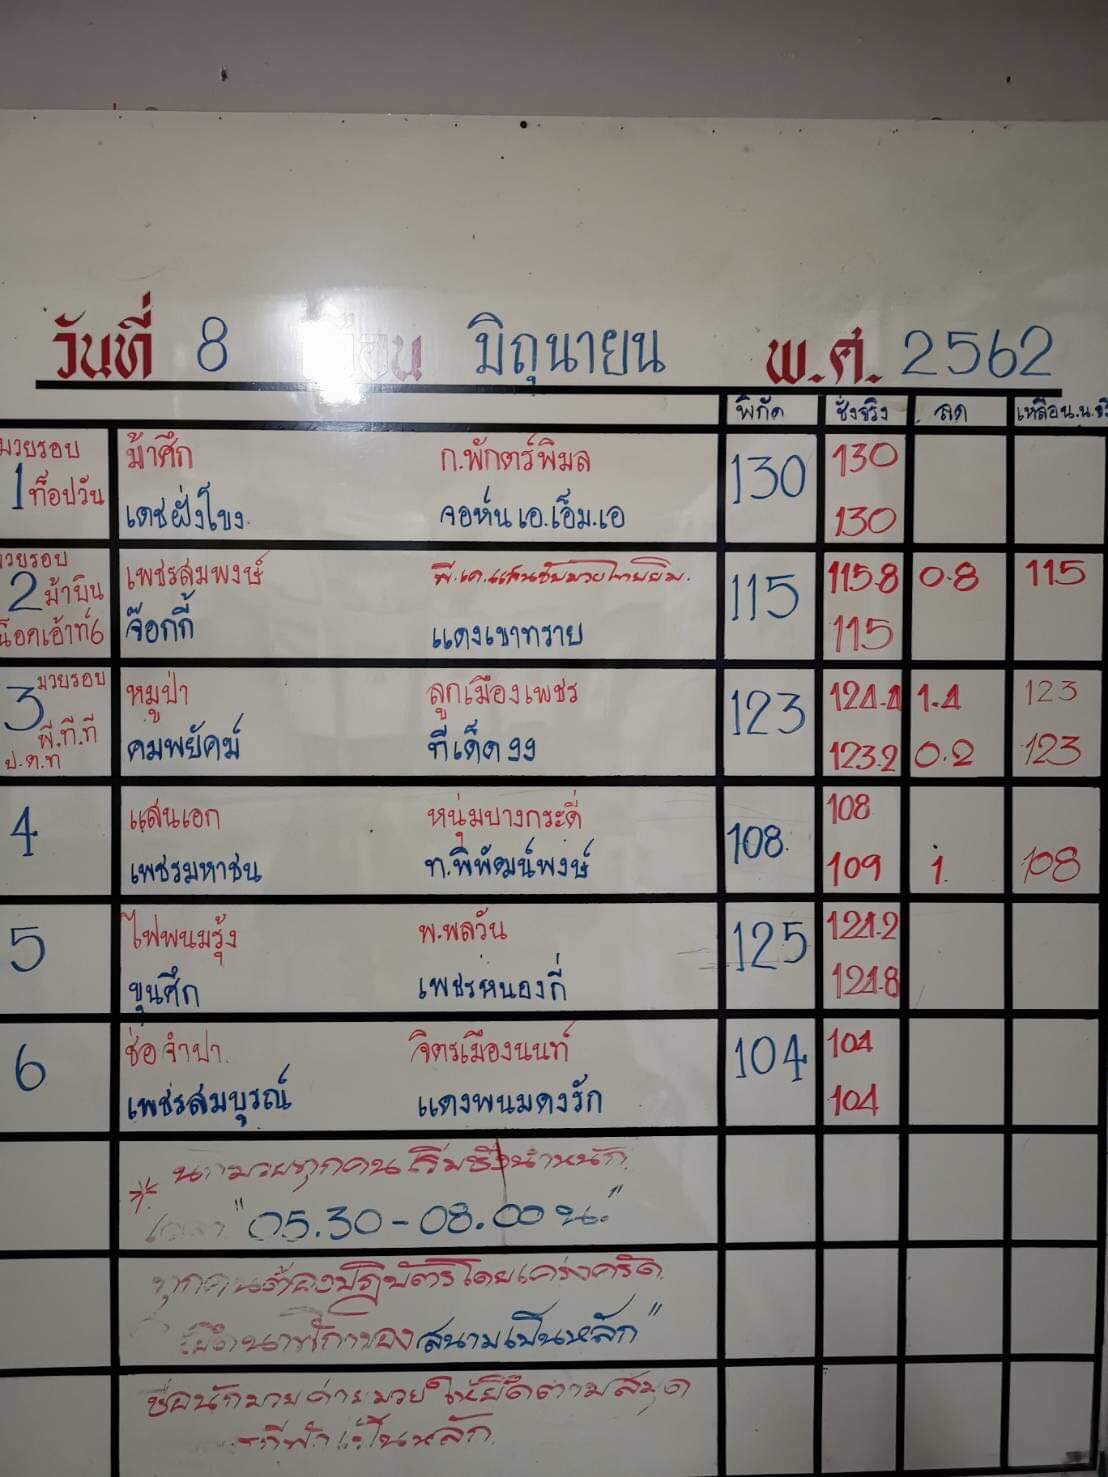 วันที่ 8 เดือน มิถุนายน พ.ศ. 2562
พิกัด ชั่งจริง ลด เหลือน.น.จริง
มวยรอบ ม้าศึก ก.พักตร์พิมล 130 130
1 ท็อปวัน เดชฝั่งโขง จอห์น เอ.เอ็ม.เอ 130
มวยรอบ เพชรสมพงษ์ 115 115.8 0.8 115
2 ม้าบิน จ๊อกกี้ แดงเขาทราย 115
น็อคเอ้าท์6
3 มวยรอบ หมูป่า ลูกเมืองเพชร 123 124.4 1.4 123
พี.ที.ที คมพยัคฆ์ ทีเด็ด99 123.2 0.2 123
ป.ต.ท
4 แสนเอก หนุ่มบางกระดี่ 108 108
เพชรมหาชน ท.พิพัฒน์พงษ์ 109 1 108
5 ไฟพนมรุ้ง พ.พลวัน 125 124.2
ขุนศึก เพชรหนองกี่ 124.8
6 ช่อจำปา จิตรเมืองนนท์ 104 104
เพชรสมบูรณ์ แดงพนมดงรัก 104
* นักมวยทุกคนเริ่มชั่งน้ำหนัก
เวลา "05.30-08.00 น."
ทุกคนต้องปฏิบัติโดยเคร่งครัด
ยึดนาฬิกาของสนามเป็นหลัก"
ชื่อนักมวยค่ายมวยให้ยึดตามสมุด
กีฬาเป็นหลัก